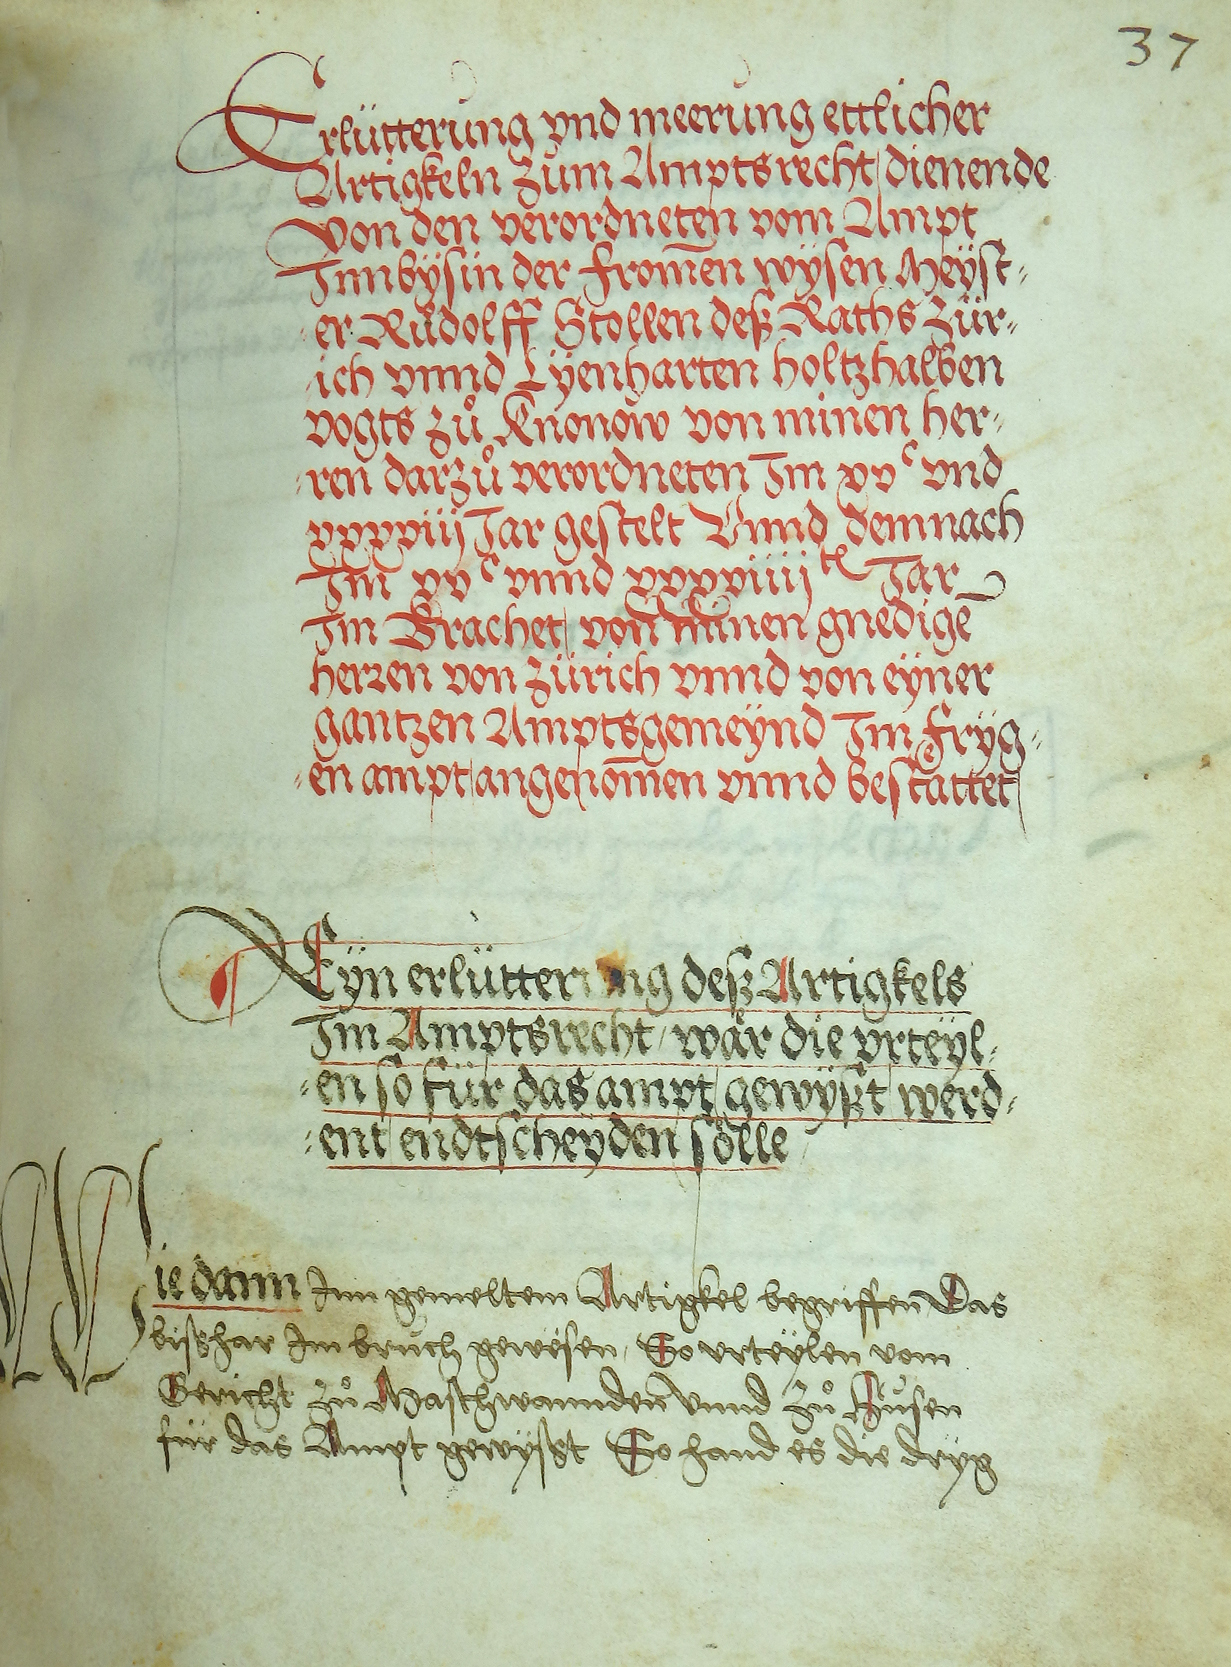 37
Erlütterung vnd meerung ettlicher
Artigkeln zům Amptsrecht dienende
Von den verordneten vom Ampt
Innbÿsin der fromen wÿsen Meÿst-
er Růdolff Stollen deß Raths Zür-
ich vnnd Lÿenharten holtzhalben
vogts zů Knonow von minen her-
ren darzů verordneten Im xvᶜ vnd
xxxviij Jar gestelt Vnnd demnach
Im xvᶜ vnnd xxxviiij Jar
Im Brachet von minen gnedigē
herren von Zürich vnnd von eÿner
gantzen Amptsgemeÿnd Im frÿg-
en ampt angenomen vnnd bestättet
Eÿn erlütterung deß Artigkels
Im Amptsrecht / wär die vrteÿl-
en so für das ampt gewÿßt werd-
ent endtscheyden sölle
Wie dann Inn gemeltem Artigkel begriffen Das
bißhar Im brůch gewësen / So vrteÿlen vom
Gericht zů Maschwannden vnnd zů Husen
für das Ampt gewÿßt So hand es die drÿg